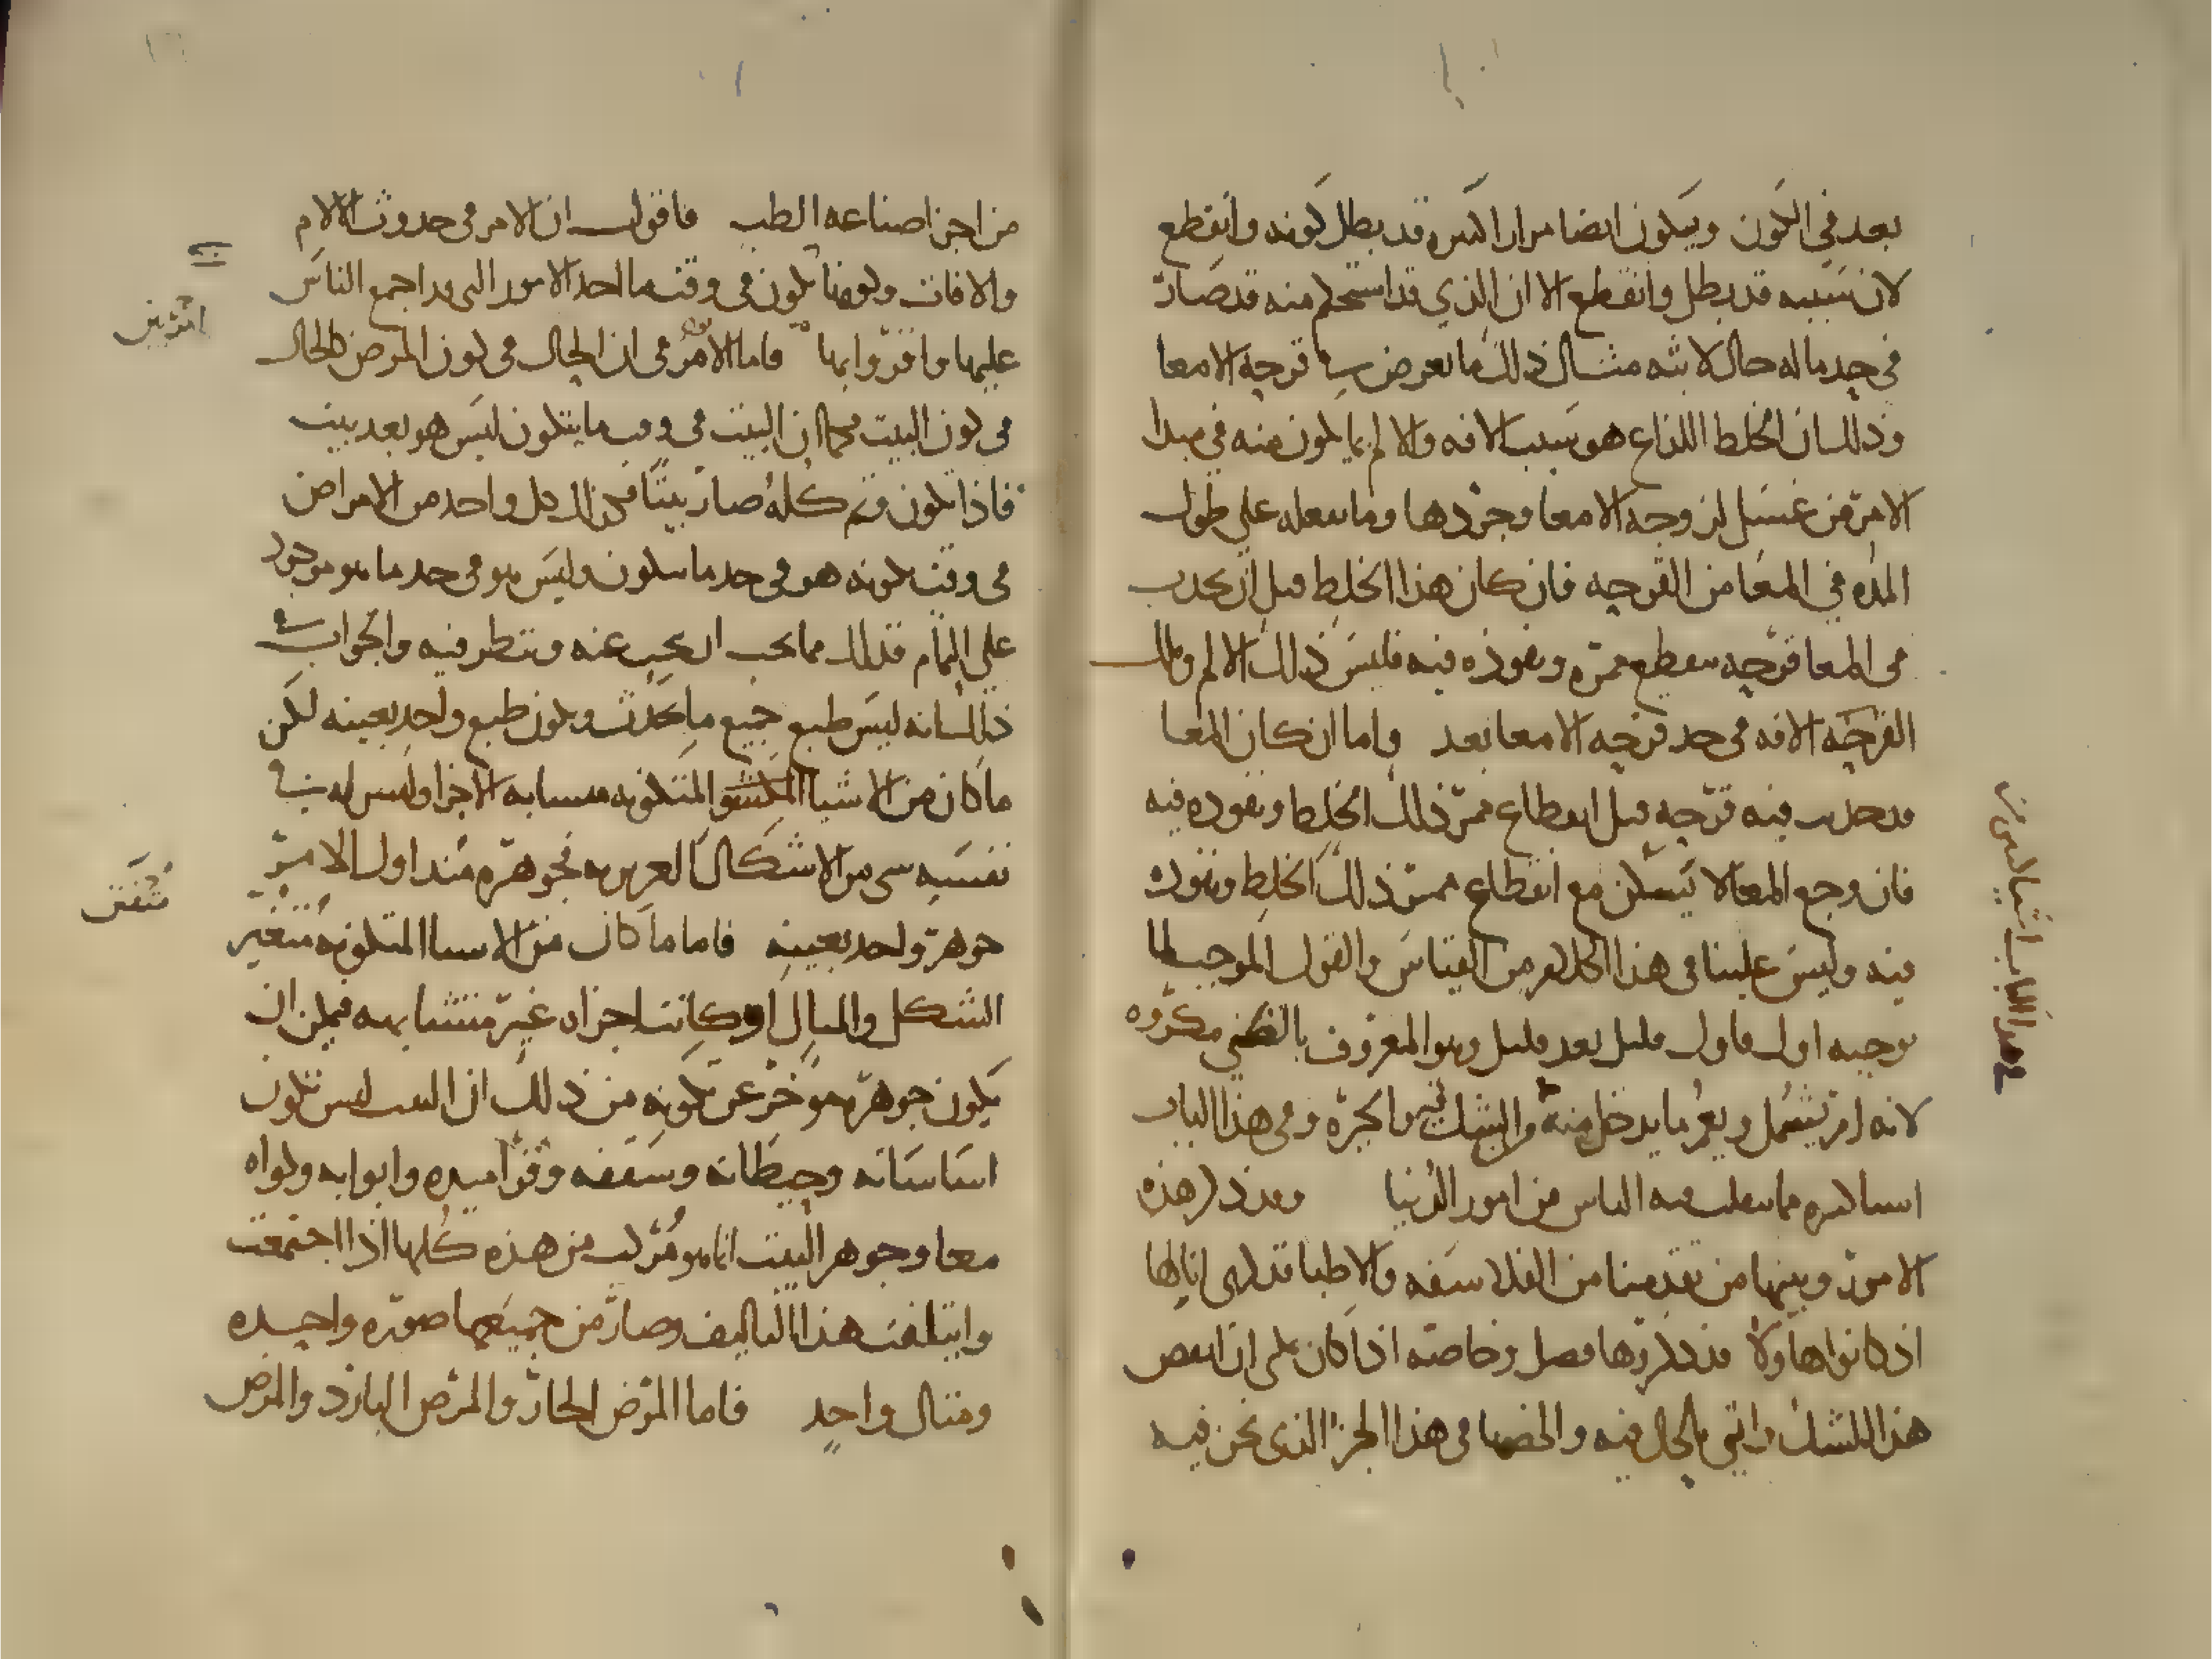 بعد في الكون ويكون ايضا مرارا كثيره قد بطل كونه وانقطع
لان سببه قد بطل وانقطع الا ان الذي قد استحكم منه قد صار
في حد ما له حال لابثه مثال ذلك ما يعرض في قرحه الامعا
وذلك ان الخلط اللذاع هو سبب الافه والالم بما يكون منه في مبدا
الامر من غسل لزوجه الامعا وجردها وما يفعله على طول
المده في المعا من القرحه فان كان هذا الخلط قبل ان يحدث
في المعا قرحه ينقطع ممره ونفوذه فيه فليس ذلك الالم وتلك
القرحه الافه في حد قرحه الامعا بعد واما ان كان المعا
قد حدث فيه قرحه قبل انقطاع ممر ذلك الخلط ونفوذه فيه
فان وجع المعا لا يسكن مع انقطاع ممر ذلك الخلط ونفوذه
فيه وليس علينا في هذا الكلام من القياس والقول الموجب لما
يوجبه اول فاول قليل بعد قليل وهو المعروف مكروه
لانه امر يشمل ويعم ما يدخل منه الشك والحيره وفي هذا الباب
اشيا كثيره مما يتقلب فيه الناس من امور الدنيا وقد ذكر هذه
الامور وبينها من تقدمنا من الفلاسفه والاطبا
اذ كانوا هاولا قد ذكروها وخاصه اذ كان
هذا الشك فيه في هذا الجز الذي نحن فيه
من اجزا صناعه الطب فاقول ان الامر في حدوث الالام
والافات وكونها يكون في وقت ما احد الامور التي قد اجمع الناس
عليها واقروا بها فاما الامر في ان الحال في كون المرض كالحال
في كون البيت فكما ان البيت في وقت ما يتكون ليس هو بعد بيت
فاذا تكون وتم كله صار بيتا كذلك كل واحد من الامراض
في وقت كونه هو في حد ما يتكون وليس هو في حد ما هو موجود
على التمام فذلك مما يجب ان يبحث عنه وينظر فيه والجواب في
ذلك انه ليس طبع جميع ما يحدث ويكون طبع واحد بعينه لكن
ما كان من الاشيا المتكونه متشابه الاجزا وليس له في
نفسه شي من الاشكال الغريبه فجوهره منذ اول الامر
جوهر واحد بعينه فاما ما كان من الاشيا المتكونه
الشكل والمثال او كانت اجزاه غير متشابهه فيمكن ان
يكون جوهره موخر عن تكونه من ذلك ان البيت ليس تكون
اساساته وحيطانه وسقفه وقراميده وابوابه وكواه
معا وجوهر البيت انما هو مركب من هذه كلها اذا اجتمعت
وايتلفت هذا التاليف وصار من جميعها صوره واحده
ومثال واحد فاما المرض الحار والمرض البارد والمرض